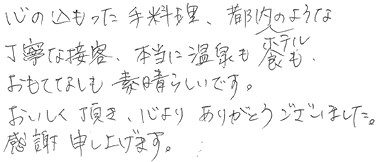 心の込もった手料理、都内のホテルのような
丁寧な接客、本当に温泉も食も、
おもてなしも素晴らしいです。
おいしく頂き、心よりありがとうございました。
感謝申し上げます。